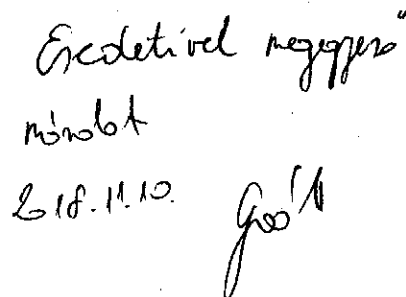 Eredetivel megegyező
másolat
2018.11.10.